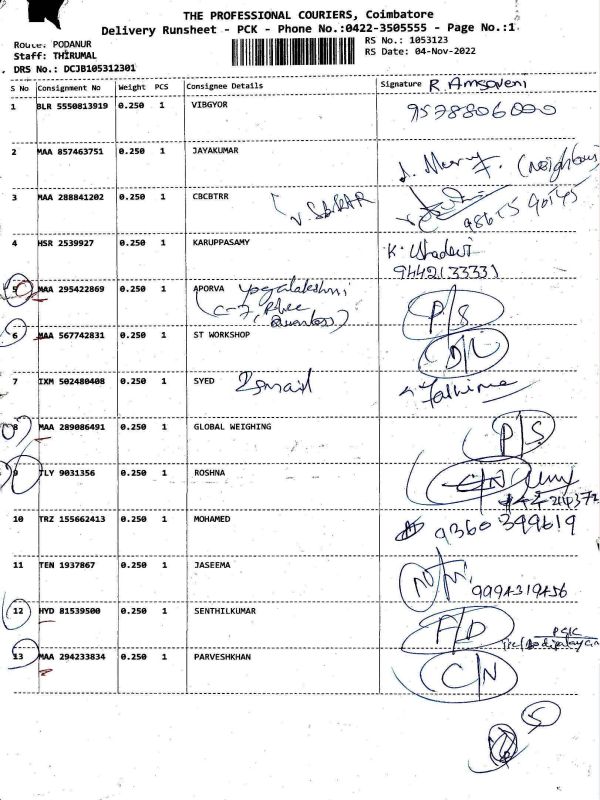 THE PROFESSIONAL COURIERS, Coimbatore
Delivery Runsheet - PCK - Phone No.:0422-3505555 - Page No.:1
Route: PODANUR
RS No.: 1053123
Staff: THIRUMAL
RS Date: 04-Nov-2022
DRS No.: DCJB105312301
S No Consignment No Weight PCS Consignee Details Signature R. Amsaveni
1 BLR 5550813919 0.250 1 VIBGYOR 9578806000
2 MAA 857463751 0.250 1 JAYAKUMAR (Neighbour
3 MAA 288841202 0.250 1 CBCBTRR
4 HSR 2539927 0.250 1 KARUPPASAMY K. Uhadevi
9442133331
5 MAA 295422869 0.250 1 APORVA Yogalakshmi P/S
C-7,
6 MAA 567742831 0.250 1 ST WORKSHOP D/L
7 IXM 502480408 0.250 1 SYED Ismail Fathima
8 MAA 289086491 0.250 1 GLOBAL WEIGHING P/S
9 TLY 9031356 0.250 1 ROSHNA C/N
10 TRZ 155662413 0.250 1 MOHAMED 9360399619
11 TEN 1937867 0.250 1 JASEEMA 9994319456
12 HYD 81539500 0.250 1 SENTHILKUMAR F/D
13 MAA 294233834 0.250 1 PARVESHKHAN C/N
5